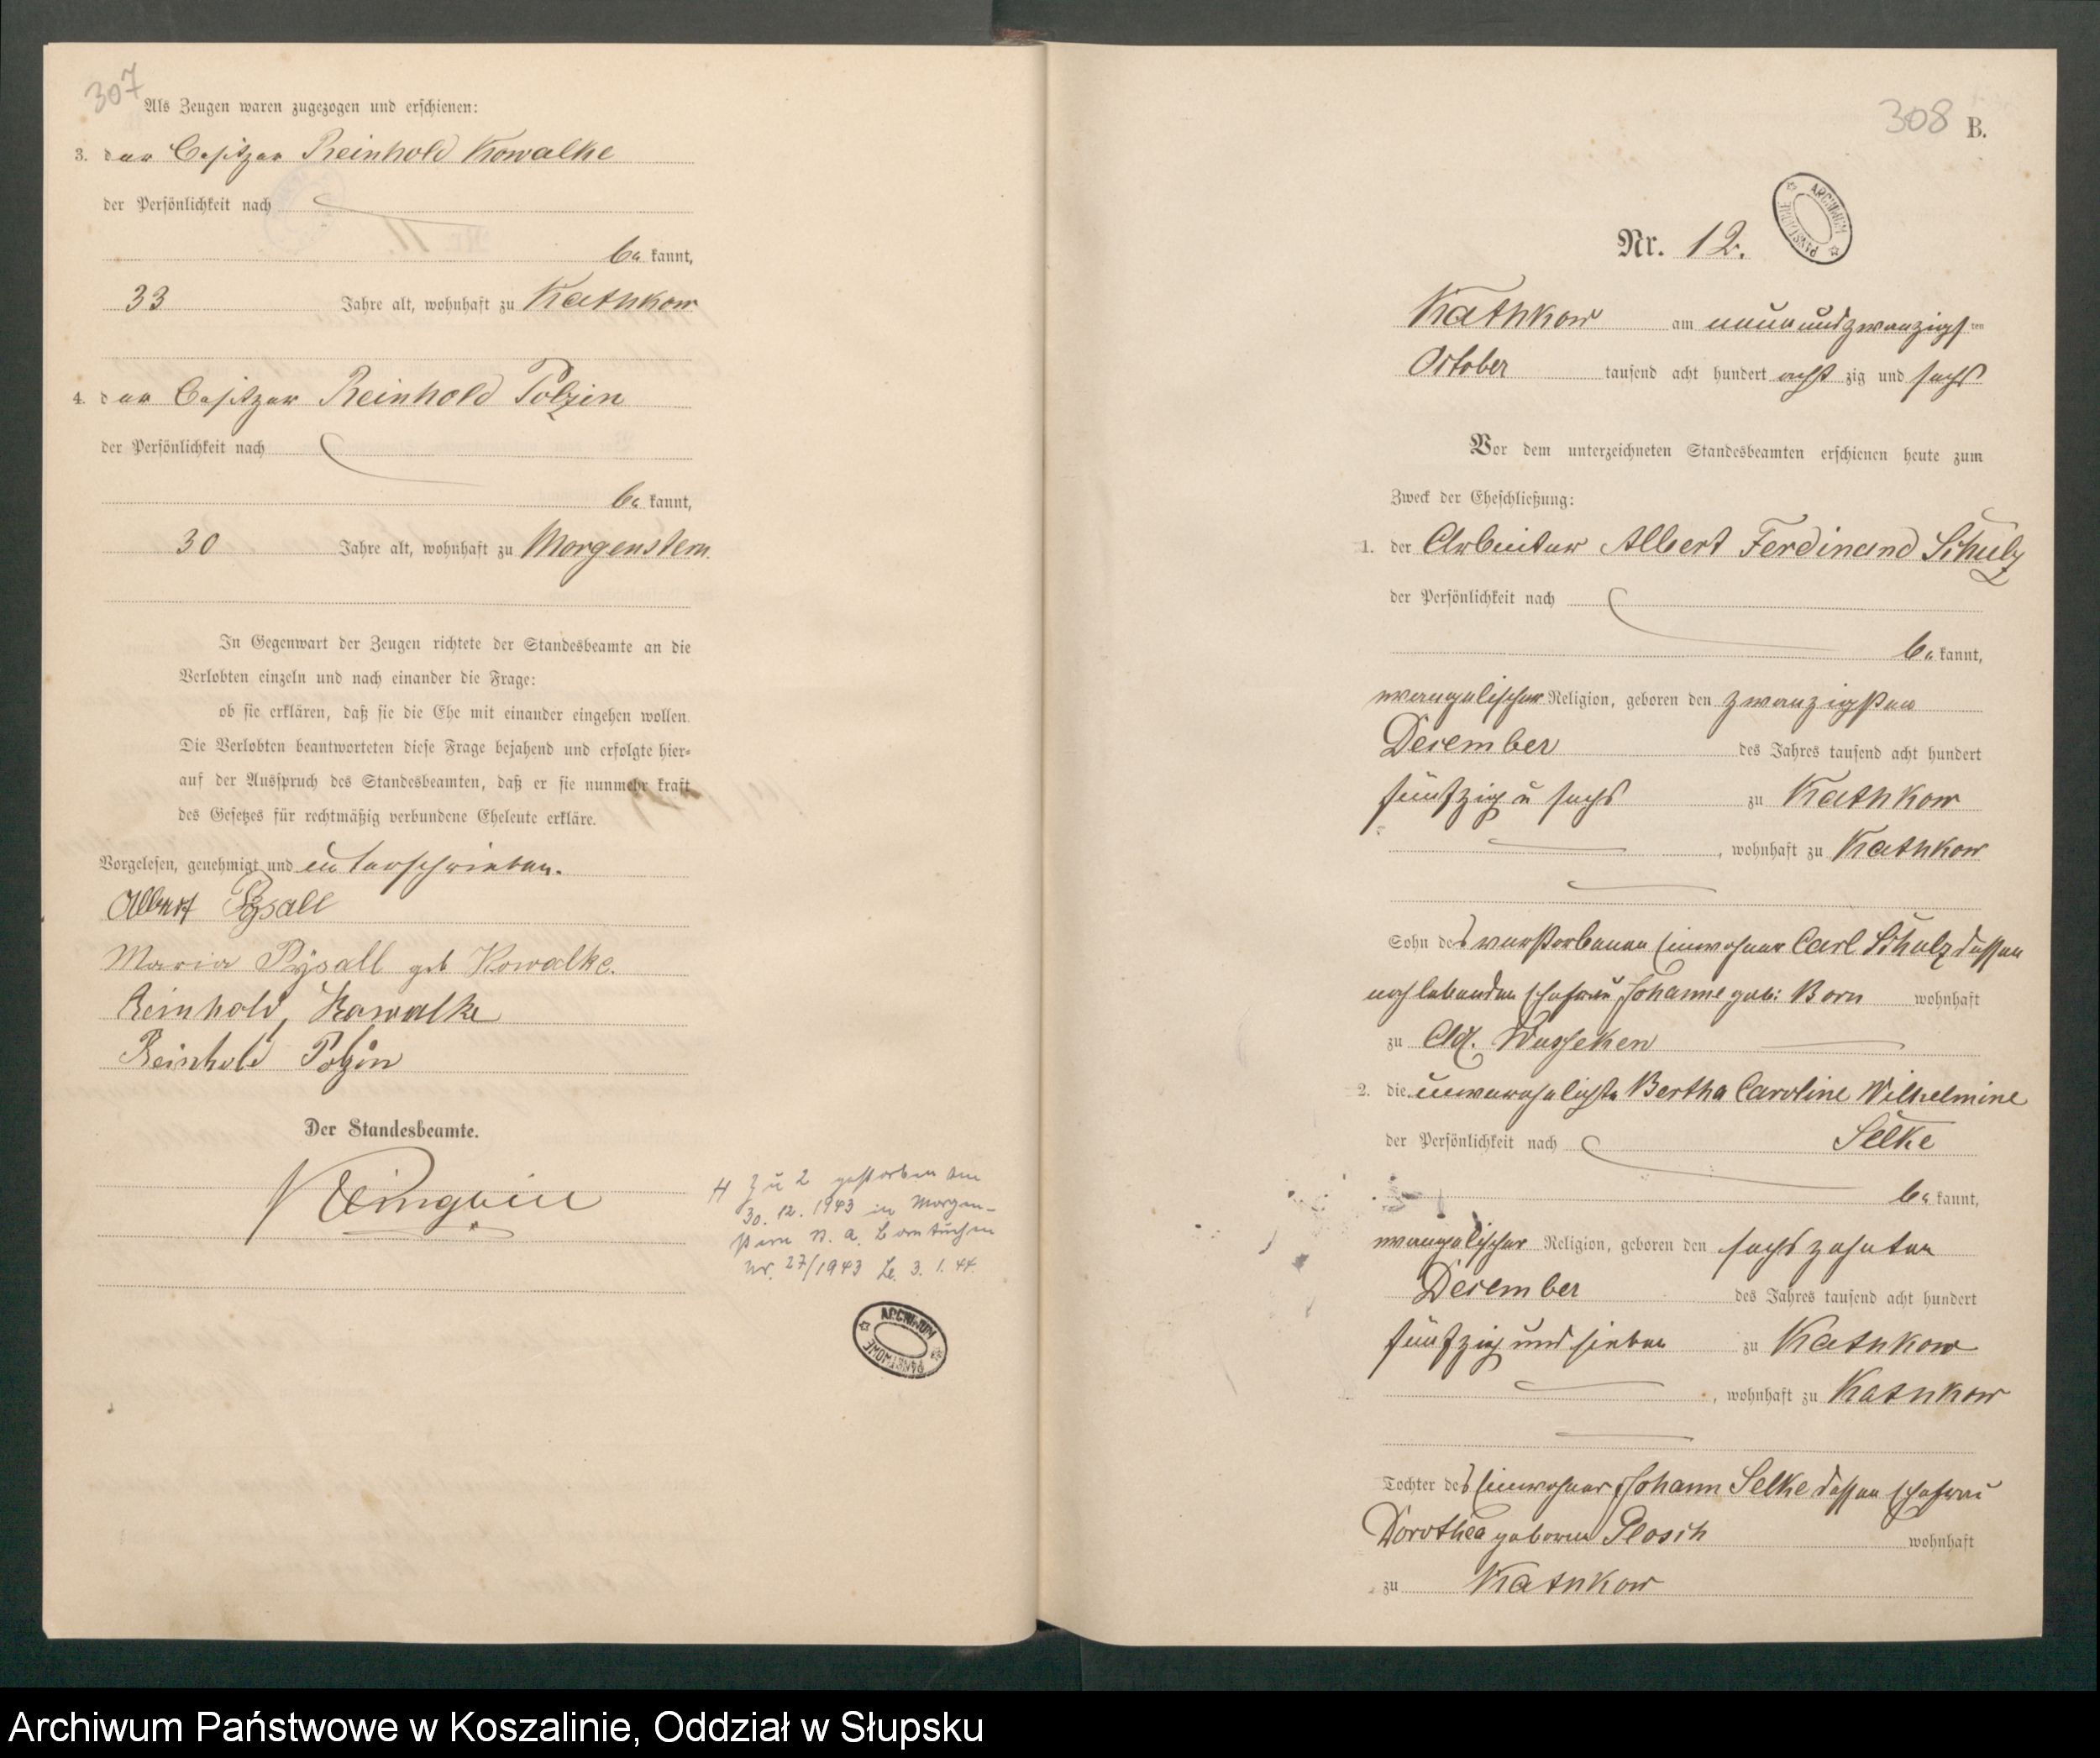 307
Als Zeugen waren zugezogen und erschienen:
3. der Besitzer Reinhold Kowalke
der Persönlichkeit nach
be kannt,
33 Jahre alt, wohnhaft zu Kathkow
4. der Besitzer Reinhold Polzin
der Persönlichkeit nach
be kannt,
30 Jahre alt, wohnhaft zu Morgenstern.
In Gegenwart der Zeugen richtete der Standesbeamte an die
Verlobten einzeln und nach einander die Frage:
ob sie erklären, daß sie die Ehe mit einander eingehen wollen.
Die Verlobten beantworteten diese Frage bejahend und erfolgte hier-
auf der Ausspruch des Standesbeamten, daß er sie nunmehr kraft
des Gesetzes für rechtmäßig verbundene Eheleute erkläre.
Vorgelesen, genehmigt und unterschrieben.
Albert Pysall
Maria Pÿsall geb Kowalke.
Reinhold, Kowalke
Reinhold Polzin
Der Standesbeamte.
H Zu 2 gestorben am
30. 12. 1943 in Morgen-
stern St. A. Borntuchen
Nr. 27/1943 Le. 3. 1. 44.
ARCHIWUM PAŃSTWOWE
308 B.
ARCHIWUM PAŃSTWOWE
Nr. 12.
Kathkow am neunundzwanzigsten
October tausend acht hundert acht zig und sechs
Vor dem unterzeichneten Standesbeamten erschienen heute zum
Zweck der Eheschließung:
1. der Arbeiter Albert Ferdinand Schulz
der Persönlichkeit nach
be kannt,
evangelischer Religion, geboren den zwanzigsten
December des Jahres tausend acht hundert
fünfzig u sechs zu Kathkow
, wohnhaft zu Kathkow
Sohn des verstorbenen Einwohner Carl Schulz dessen
noch lebenden Ehefrau Johanne geb: Born wohnhaft
zu Adl. Wusseken
2. die unverehelichte Bertha Caroline Wilhelmine
der Persönlichkeit nach Selke
be kannt,
evangelischer Religion, geboren den sechszehnten
December des Jahres tausend acht hundert
fünfzig und sieben zu Kathkow
, wohnhaft zu Kathkow
Tochter des Einwohner Johann Selke dessen Ehefrau
Dorothea geboren Plosch wohnhaft
zu Kathkow
Archiwum Państwowe w Koszalinie, Oddział w Słupsku